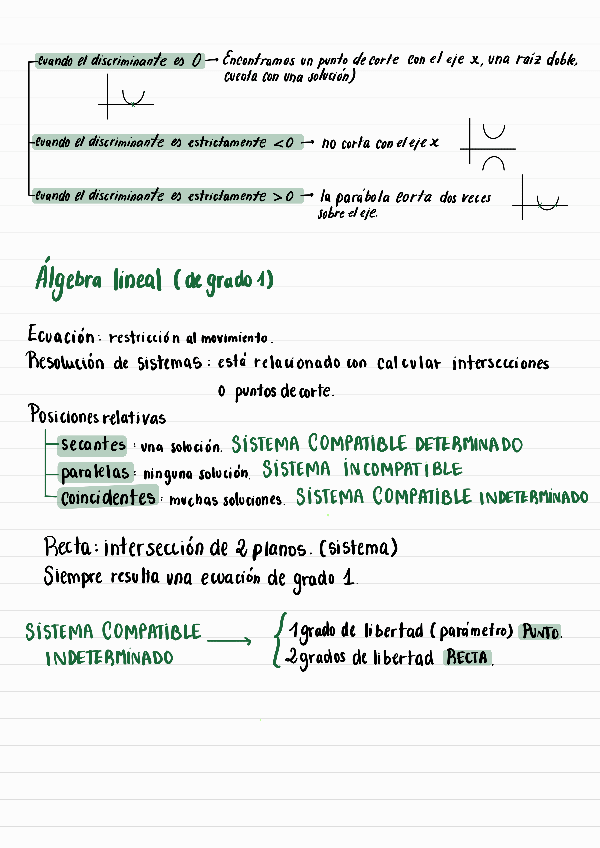 cuando el discriminante es 0 → Encontramos un punto de corte con el eje x, una raíz doble,
cuenta con una solución)
cuando el discriminante es estrictamente <0 → no corta con el eje x
cuando el discriminante es estrictamente >0 → la parábola corta dos veces
sobre el eje.
Álgebra lineal (de grado 1)
Ecuación: restricción al movimiento.
Resolución de sistemas: está relacionado con calcular intersecciones
o puntos de corte.
Posiciones relativas
secantes: una solución. SISTEMA COMPATIBLE DETERMINADO
paralelas: ninguna solución. SISTEMA INCOMPATIBLE
coincidentes: muchas soluciones. SISTEMA COMPATIBLE INDETERMINADO
Recta: intersección de 2 planos. (sistema)
Siempre resulta una ecuación de grado 1.
SISTEMA COMPATIBLE → { 1 grado de libertad (parámetro) PUNTO.
INDETERMINADO 2 grados de libertad RECTA.